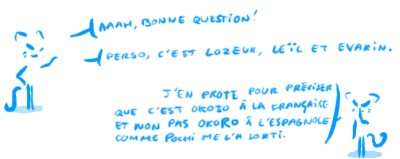 AAAH, BONNE QUESTION!
PERSO, C'EST LOZEUR, LEÏL ET EVARIN.
J'EN PROTE POUR PRÉCISER
QUE C'EST OKOJO À LA FRANÇAISE
ET NON PAS OKORO À L'ESPAGNOLE
COMME POCHI ME L'A SORTI.